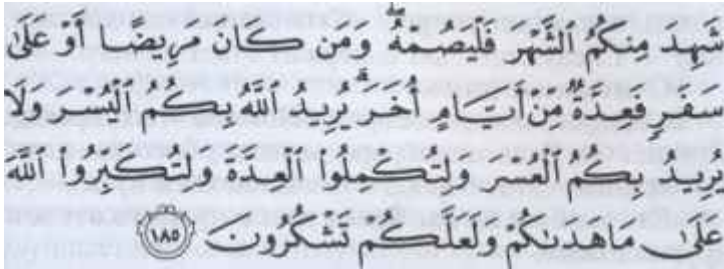 شَهِدَ مِنكُمُ الشَّهْرَ فَلْيَصُمْهُ ۖ وَمَن كَانَ مَرِيضًا أَوْ عَلَىٰ
سَفَرٍ فَعِدَّةٌ مِّنْ أَيَّامٍ أُخَرَ ۗ يُرِيدُ اللَّهُ بِكُمُ الْيُسْرَ وَلَا
يُرِيدُ بِكُمُ الْعُسْرَ وَلِتُكْمِلُوا الْعِدَّةَ وَلِتُكَبِّرُوا اللَّهَ
عَلَىٰ مَا هَدَاكُمْ وَلَعَلَّكُمْ تَشْكُرُونَ ١٨٥